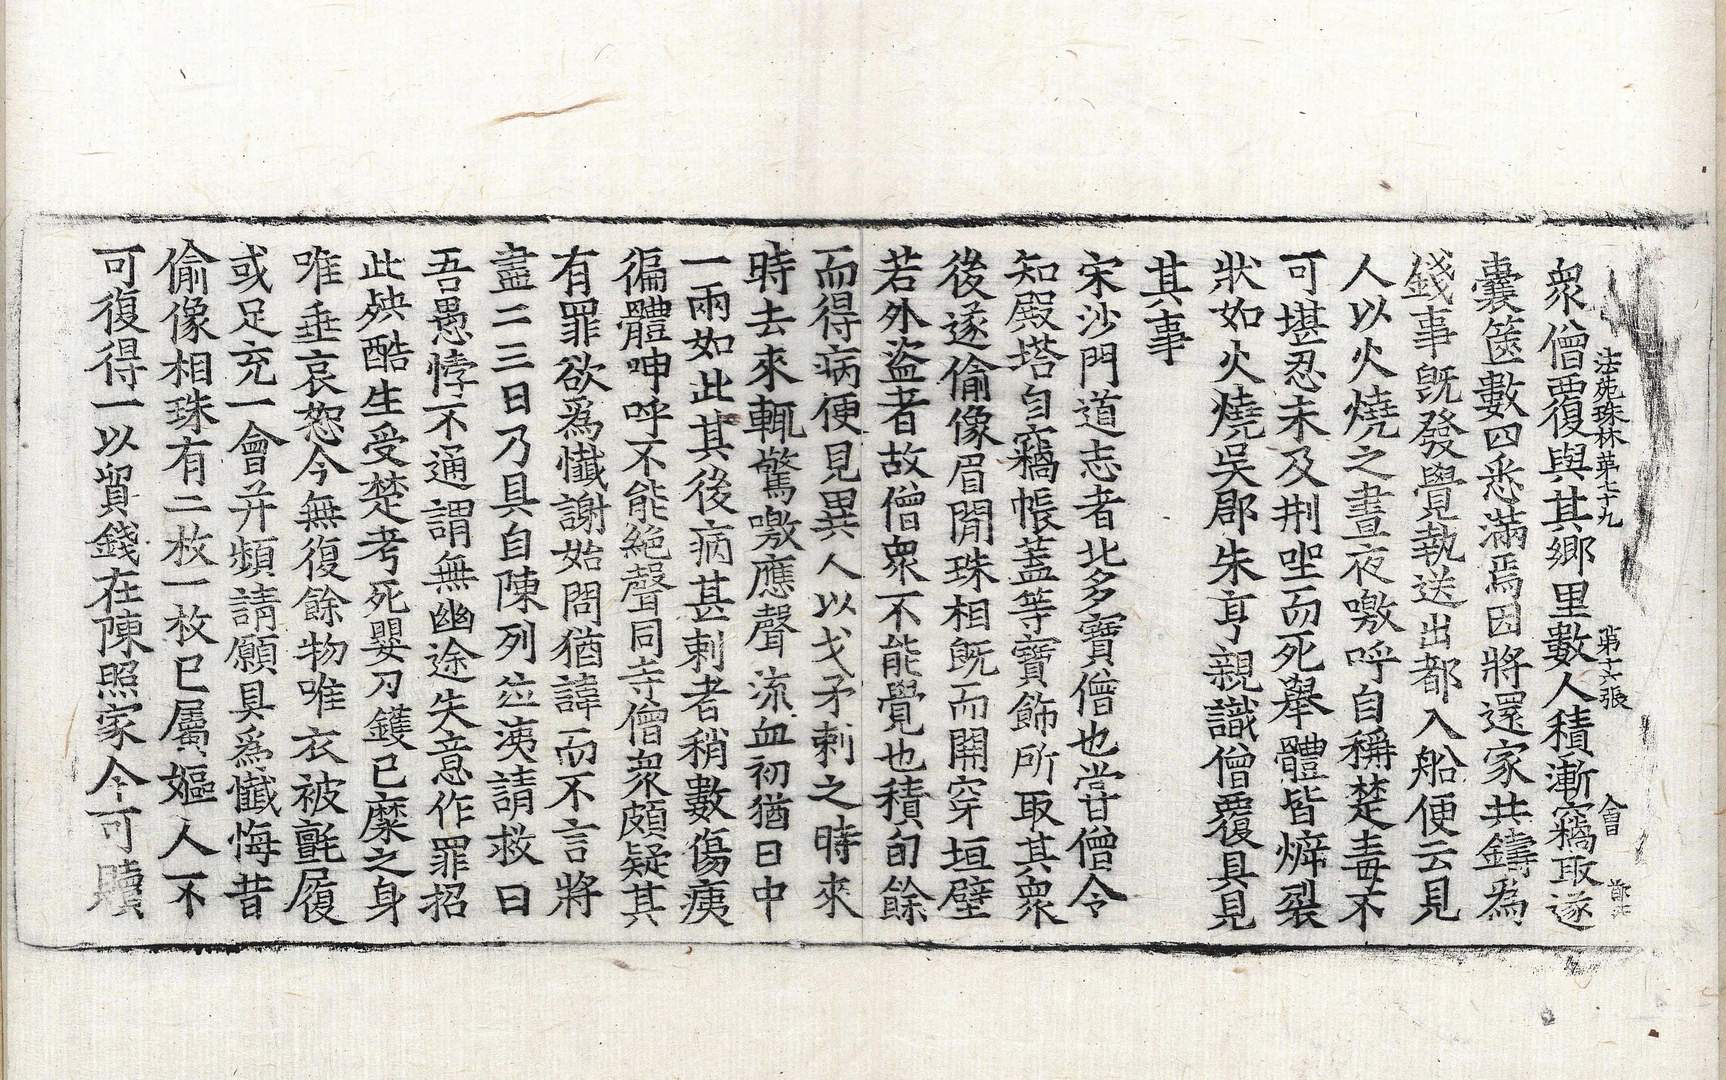 法苑珠林第七十九 第十六張 會
衆僧覆與其鄉里數人積漸竊取遂
囊篋數四悉滿焉因將還家共鑄爲
錢事旣發覺執送出都入船便云見
人以火燒之晝夜噭呼自稱楚毒不
可堪忍未及刑坐而死舉體皆㶿裂
狀如火燒吳郡朱亨親識僧覆具見
其事
宋沙門道志者北多寶僧也甞僧令
知殿塔自竊帳蓋等寶飾所取其衆
後遂偷像眉閒珠相旣而開穿垣壁
若外盜者故僧衆不能覺也積旬餘
而得病便見異人以戈矛刺之時來
時去來輒驚噭應聲流血初猶日中
一兩如此其後病甚刺者稍數傷痍
徧體呻呼不能絕聲同寺僧衆頗疑其
有罪欲爲懺謝始問猶諱而不言將
盡二三日乃具自陳列泣洟請救曰
吾愚悖不通謂無幽途失意作罪招
此殃酷生受楚考死嬰刀鑊已糜之身
唯垂哀恕今無復餘物唯衣被氈履
或足充一會并頻請願具爲懺悔昔
偷像相珠有二枚一枚已屬嫗人不
可復得一以質錢在陳照家今可贖